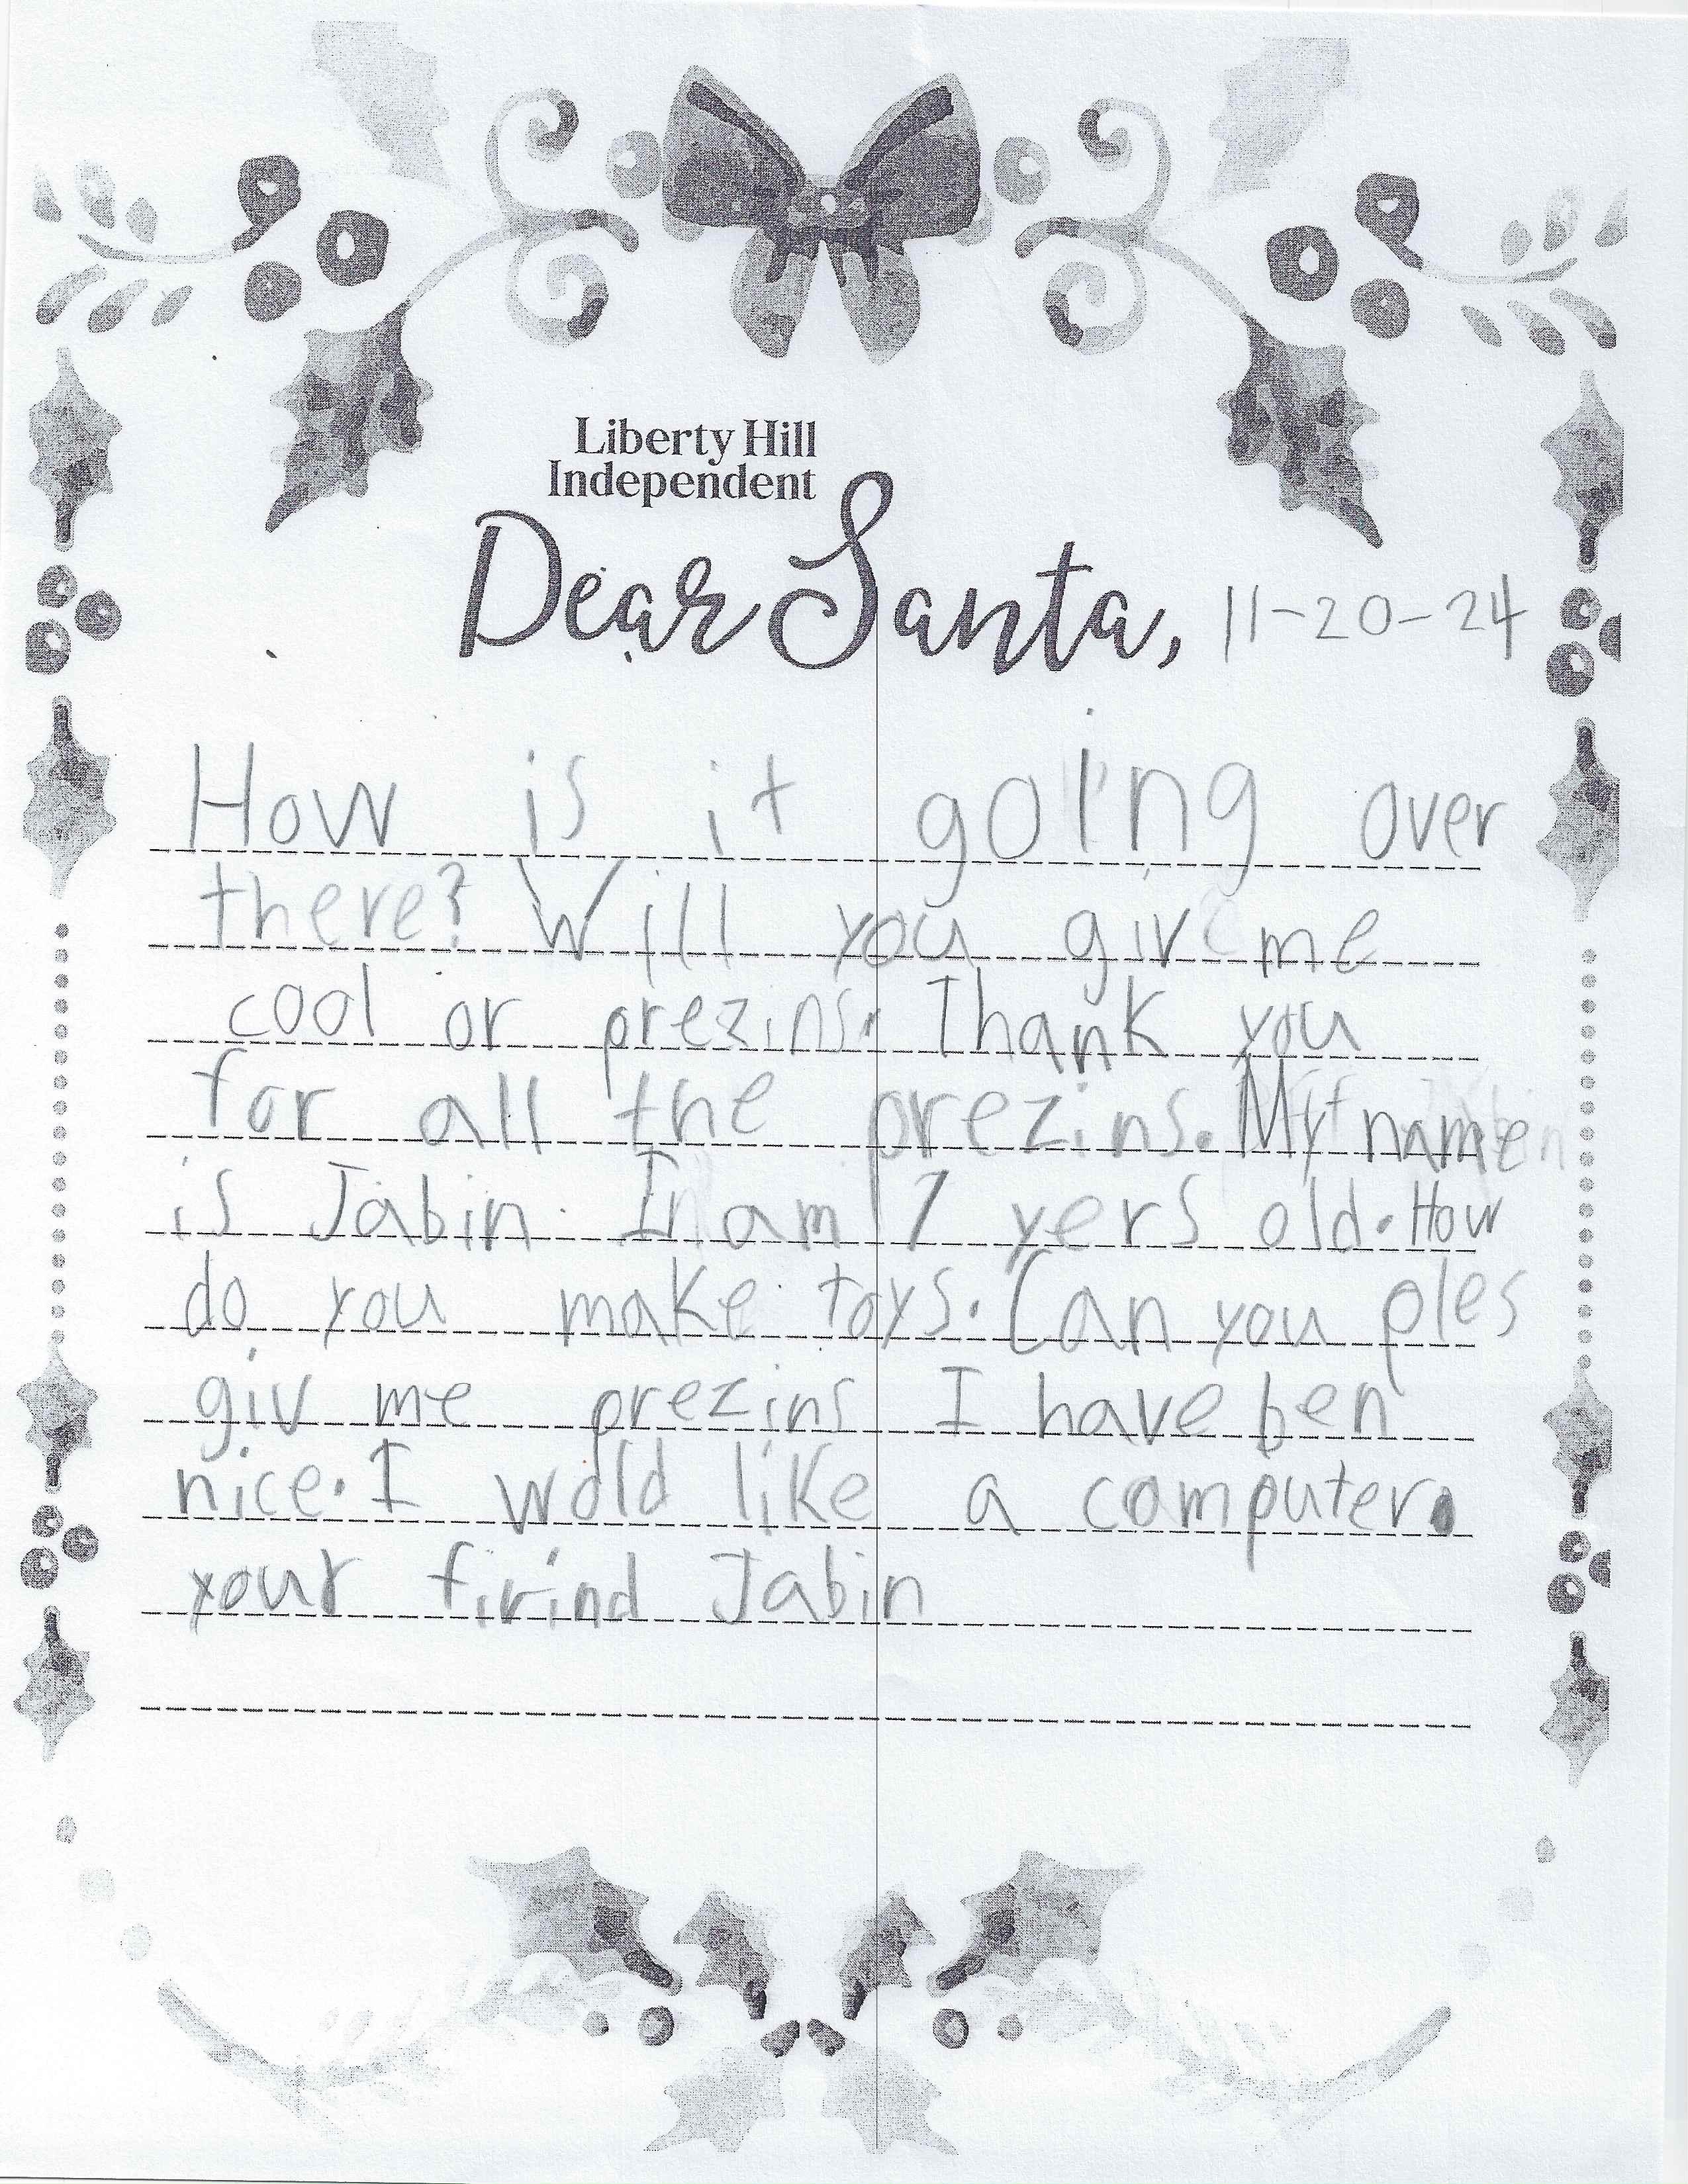 Liberty Hill
Independent
Dear Santa, 11-20-24
How is it going over
there? Will you giv me
cool or prezins. Thank you
for all the prezins. My name
is Jabin. I am 7 yers old. How
do you make toys. Can you ples
giv me prezins I have ben
nice. I wold like a computer.
your firind Jabin